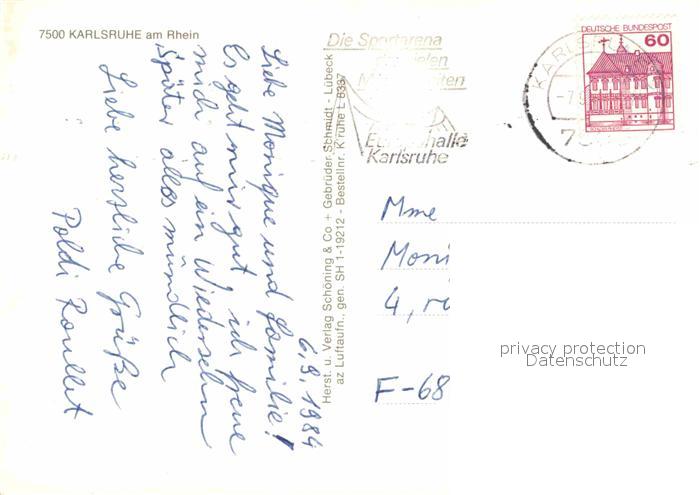 7500 KARLSRUHE am Rhein
6.9.1984
Liebe Monique und Familie!
Es geht mir gut, ich freue
mich auf ein Wiedersehn
später alles mündlich
Liebe herzliche Grüße
Poldi
Herst. u. Verlag Schöning & Co + Gebrüder Schmidt - Lübeck
az Luftaufn., gen. SH 1-19212 - Bestellnr. K'ruhe L 6337
Die Sportarena
Karlsruhe
DEUTSCHE BUNDESPOST
60
Mme
Moni
4, ri
F-68
privacy protection
Datenschutz